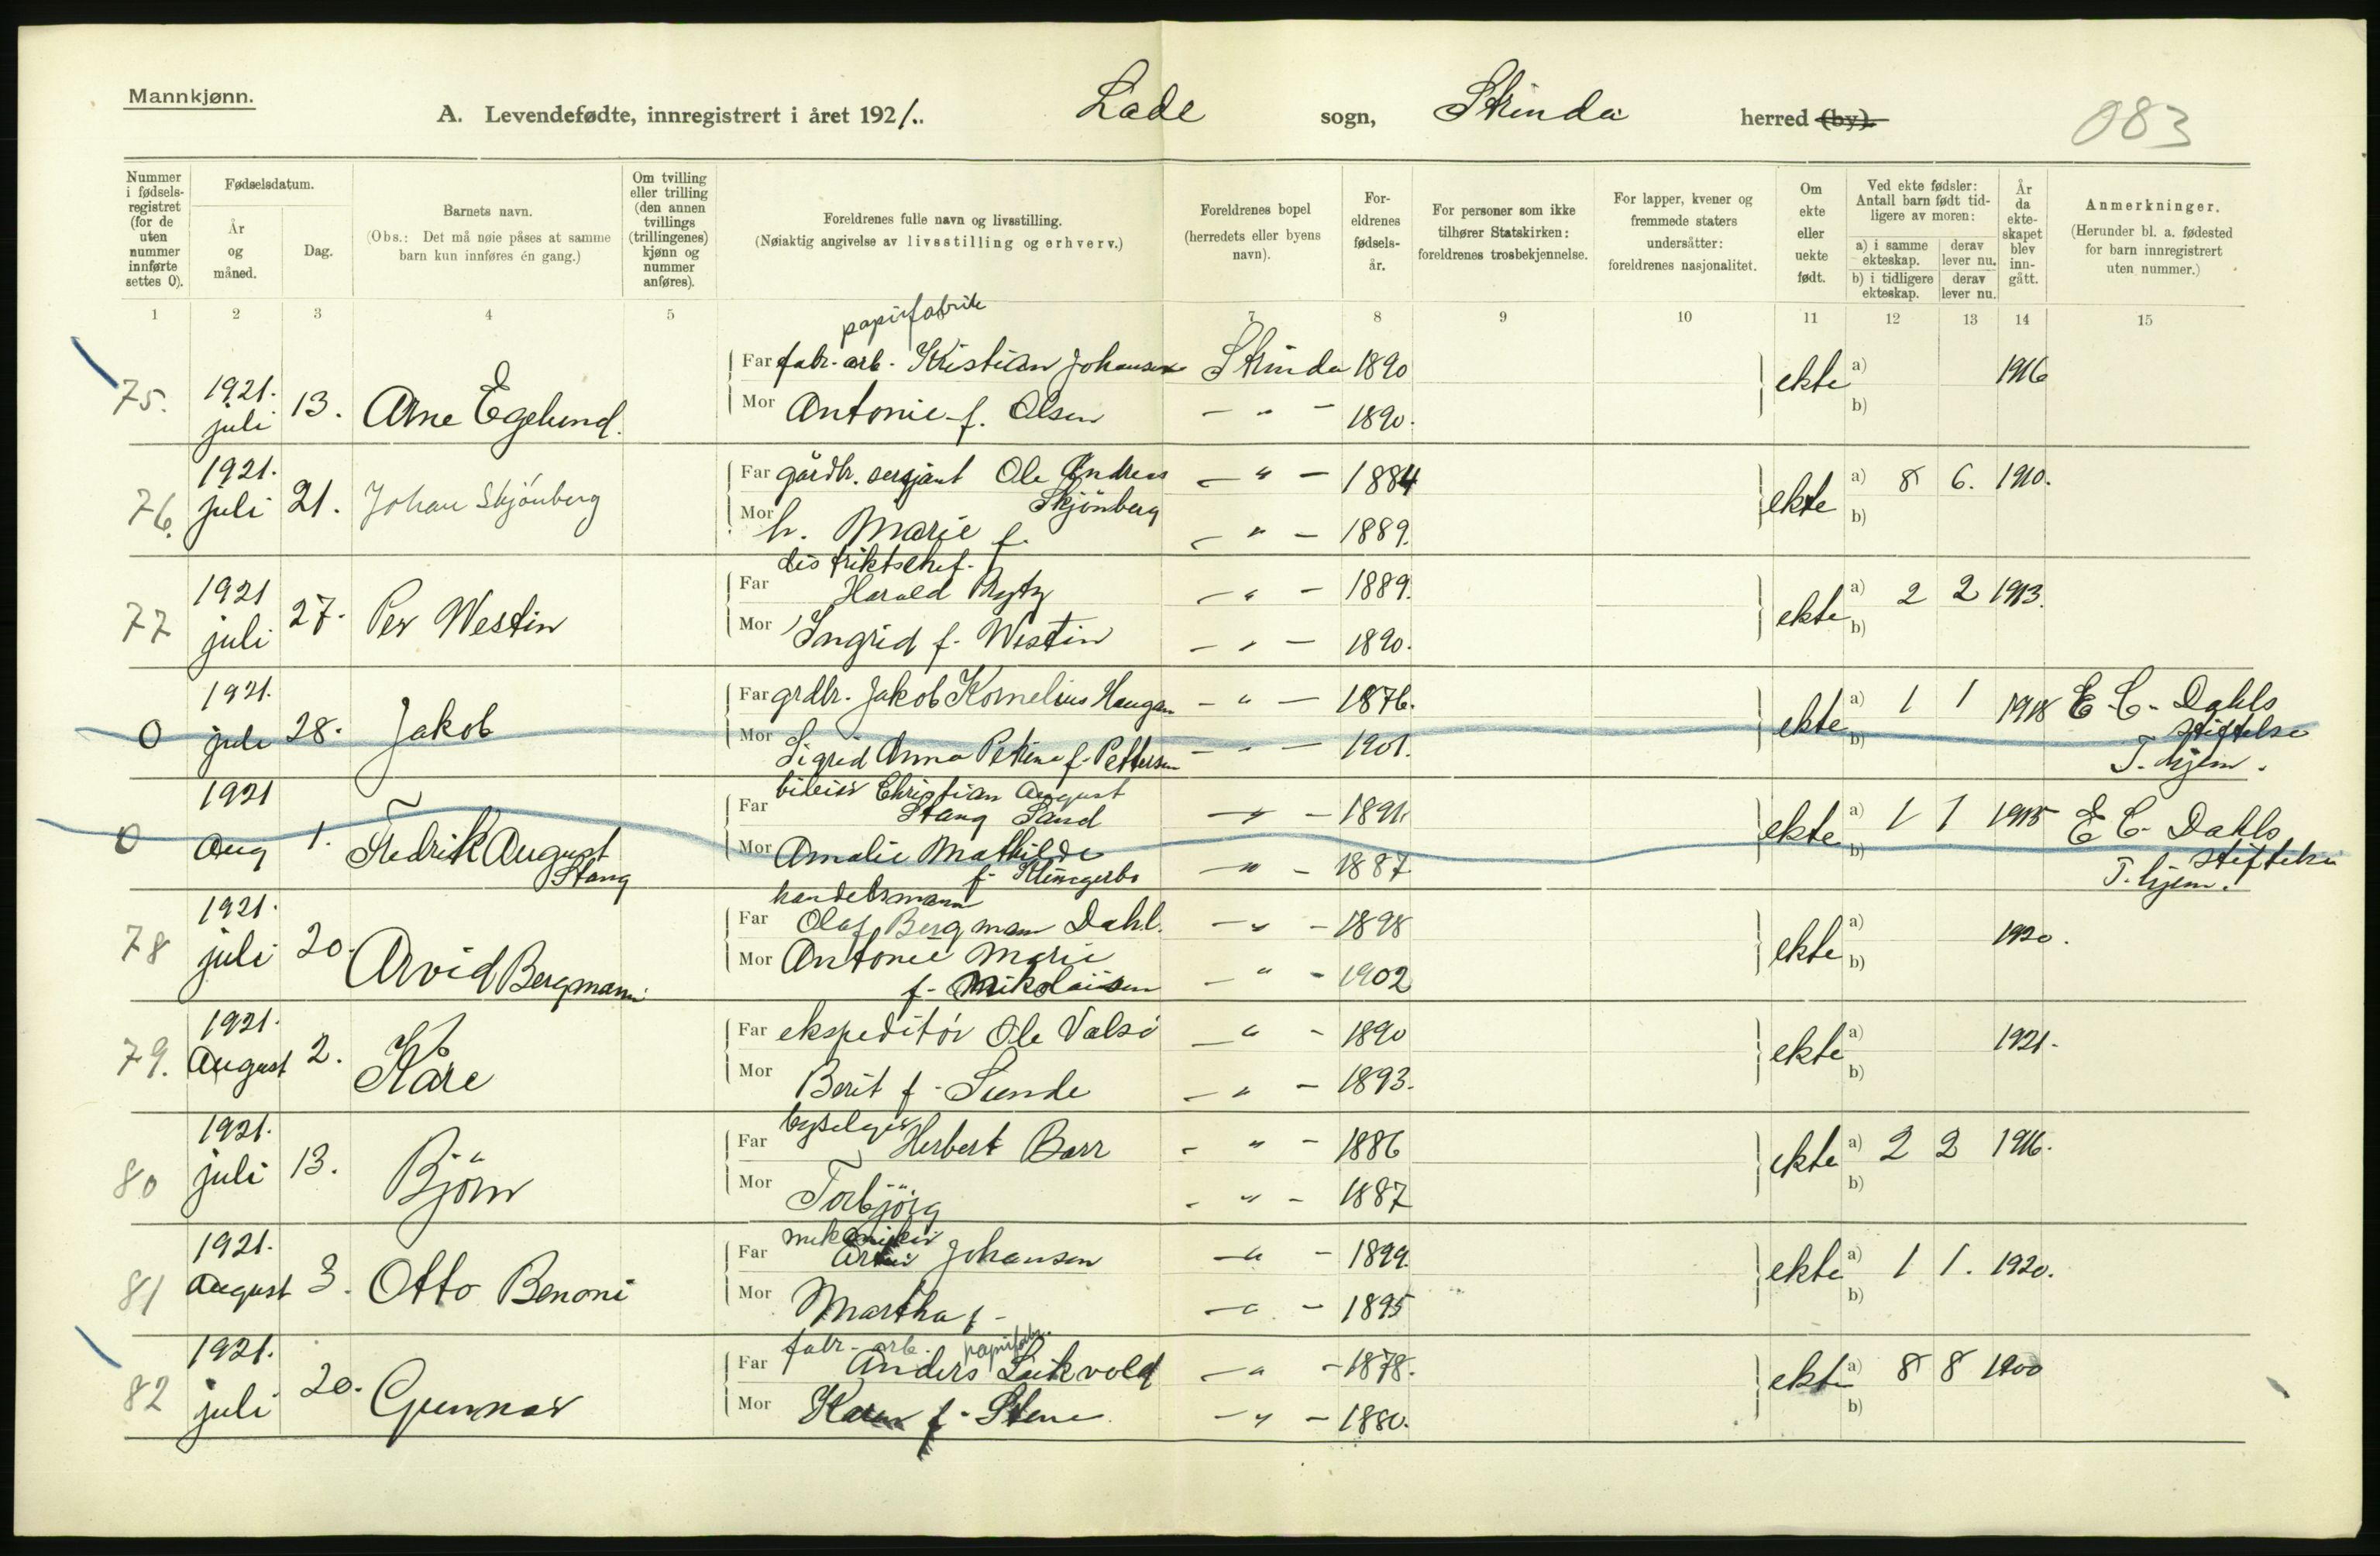 Mannkjønn.
A. Levendefødte, innregistrert i året 1921. Lade sogn, Strinda herred (by).
083
Nummer i fødsels-registret (for de uten nummer innførte settes 0).
Fødselsdatum.
År og måned.
Dag.
Barnets navn.
(Obs.: Det må nøie påses at samme barn kun innføres én gang.)
Om tvilling eller trilling (den annen tvillings (trillingenes) kjønn og nummer anføres).
Foreldrenes fulle navn og livsstilling.
(Nøiaktig angivelse av livsstilling og erhverv.)
Foreldrenes bopel (herredets eller byens navn).
For-eldrenes fødsels-år.
For personer som ikke tilhører Statskirken: foreldrenes trosbekjennelse.
For lapper, kvener og fremmede staters undersåtter: foreldrenes nasjonalitet.
Om ekte eller uekte født.
Ved ekte fødsler: Antall barn født tid-ligere av moren:
a) i samme ekteskap. derav lever nu.
b) i tidligere ekteskap. derav lever nu.
År da ekte-skapet blev inn-gått.
Anmerkninger.
(Herunder bl. a. fødested for barn innregistrert uten nummer.)
1 2 3 4 5 7 8 9 10 11 12 13 14 15
papirfabrik
75. 1921. juli 13. Arne Egelund. Far fabr.-arb. Kristian Johansen Strinda 1890 ekte a) b) 1916
Mor Antonie f. Olsen - " - 1890.
76. 1921. juli 21. Johan Skjönberg Far gårdbr. sersjant Ole Andreas Skjönberg - " - 1884 ekte a) 8 6. 1910. b)
Mor h. Marie f. - " - 1889.
77 1921 juli 27. Per Westin distriktschef. Far Harald - " - 1889. ekte a) 2 2 1913. b)
Mor Ingrid f. Westin - " - 1890.
0 1921. juli 28. Jakob Far grdbr. Jakob Kornelius Haugan - " - 1876. ekte a) 1 1 1918 b) E. C. Dahls stiftelse T. hjem.
Mor Sigrid Anna Petrine f. Pettersen - " - 1901.
0 1921 Aug 1. Fredrik August Stang Far Christian August Stang Sand - " - 1891. ekte a) 1 1 1915 b) E C. Dahls stiftelse T. hjem.
Mor Amalie Mathilde f. - " - 1887
78 1921. juli 20. Arvid Bergmann handelsmann Far Olaf Bergman Dahl. - " - 1898 ekte a) b) 1920.
Mor Antonie Marie f. Nikolaisen - " - 1902
79. 1921. August 2. Kåre Far ekspeditör Ole Valsö - " - 1890 ekte a) b) 1921.
Mor Berit f. Sunde - " - 1893.
80 1921. juli 13. Björn Far Herbert Barr - " - 1886 ekte a) 2 2 1916. b)
Mor Torbjörg - " - 1887
81 1921. August 3. Otto Benoni mekaniker Far Johansen - " - 1899. ekte a) 1 1. 1920. b)
Mor Martha f. - " - 1895
82 1921. juli 20. Gunnar fabr.-arb. papirfabr. Far Anders - " - 1878. ekte a) 8 8 1900 b)
Mor Karen f. Stene - " - 1880.